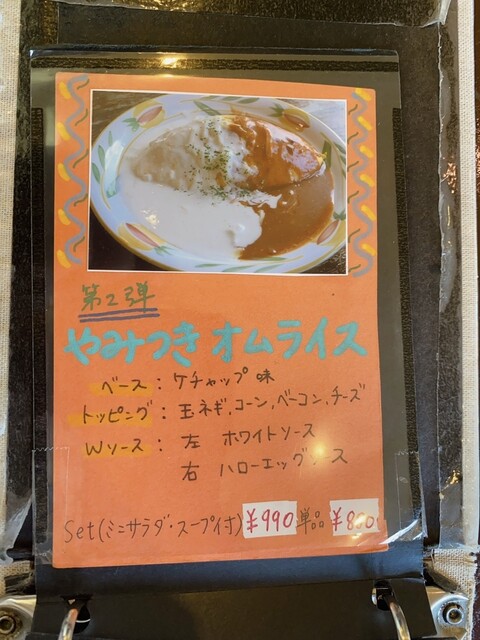 第2弾
やみつき オムライス
ベース : ケチャップ味
トッピング : 玉ネギ、コーン、ベーコン、チーズ
Wソース : 左 ホワイトソース
右 ハローエッグソース
Set(ミニサラダ・スープ付) ¥990 単品